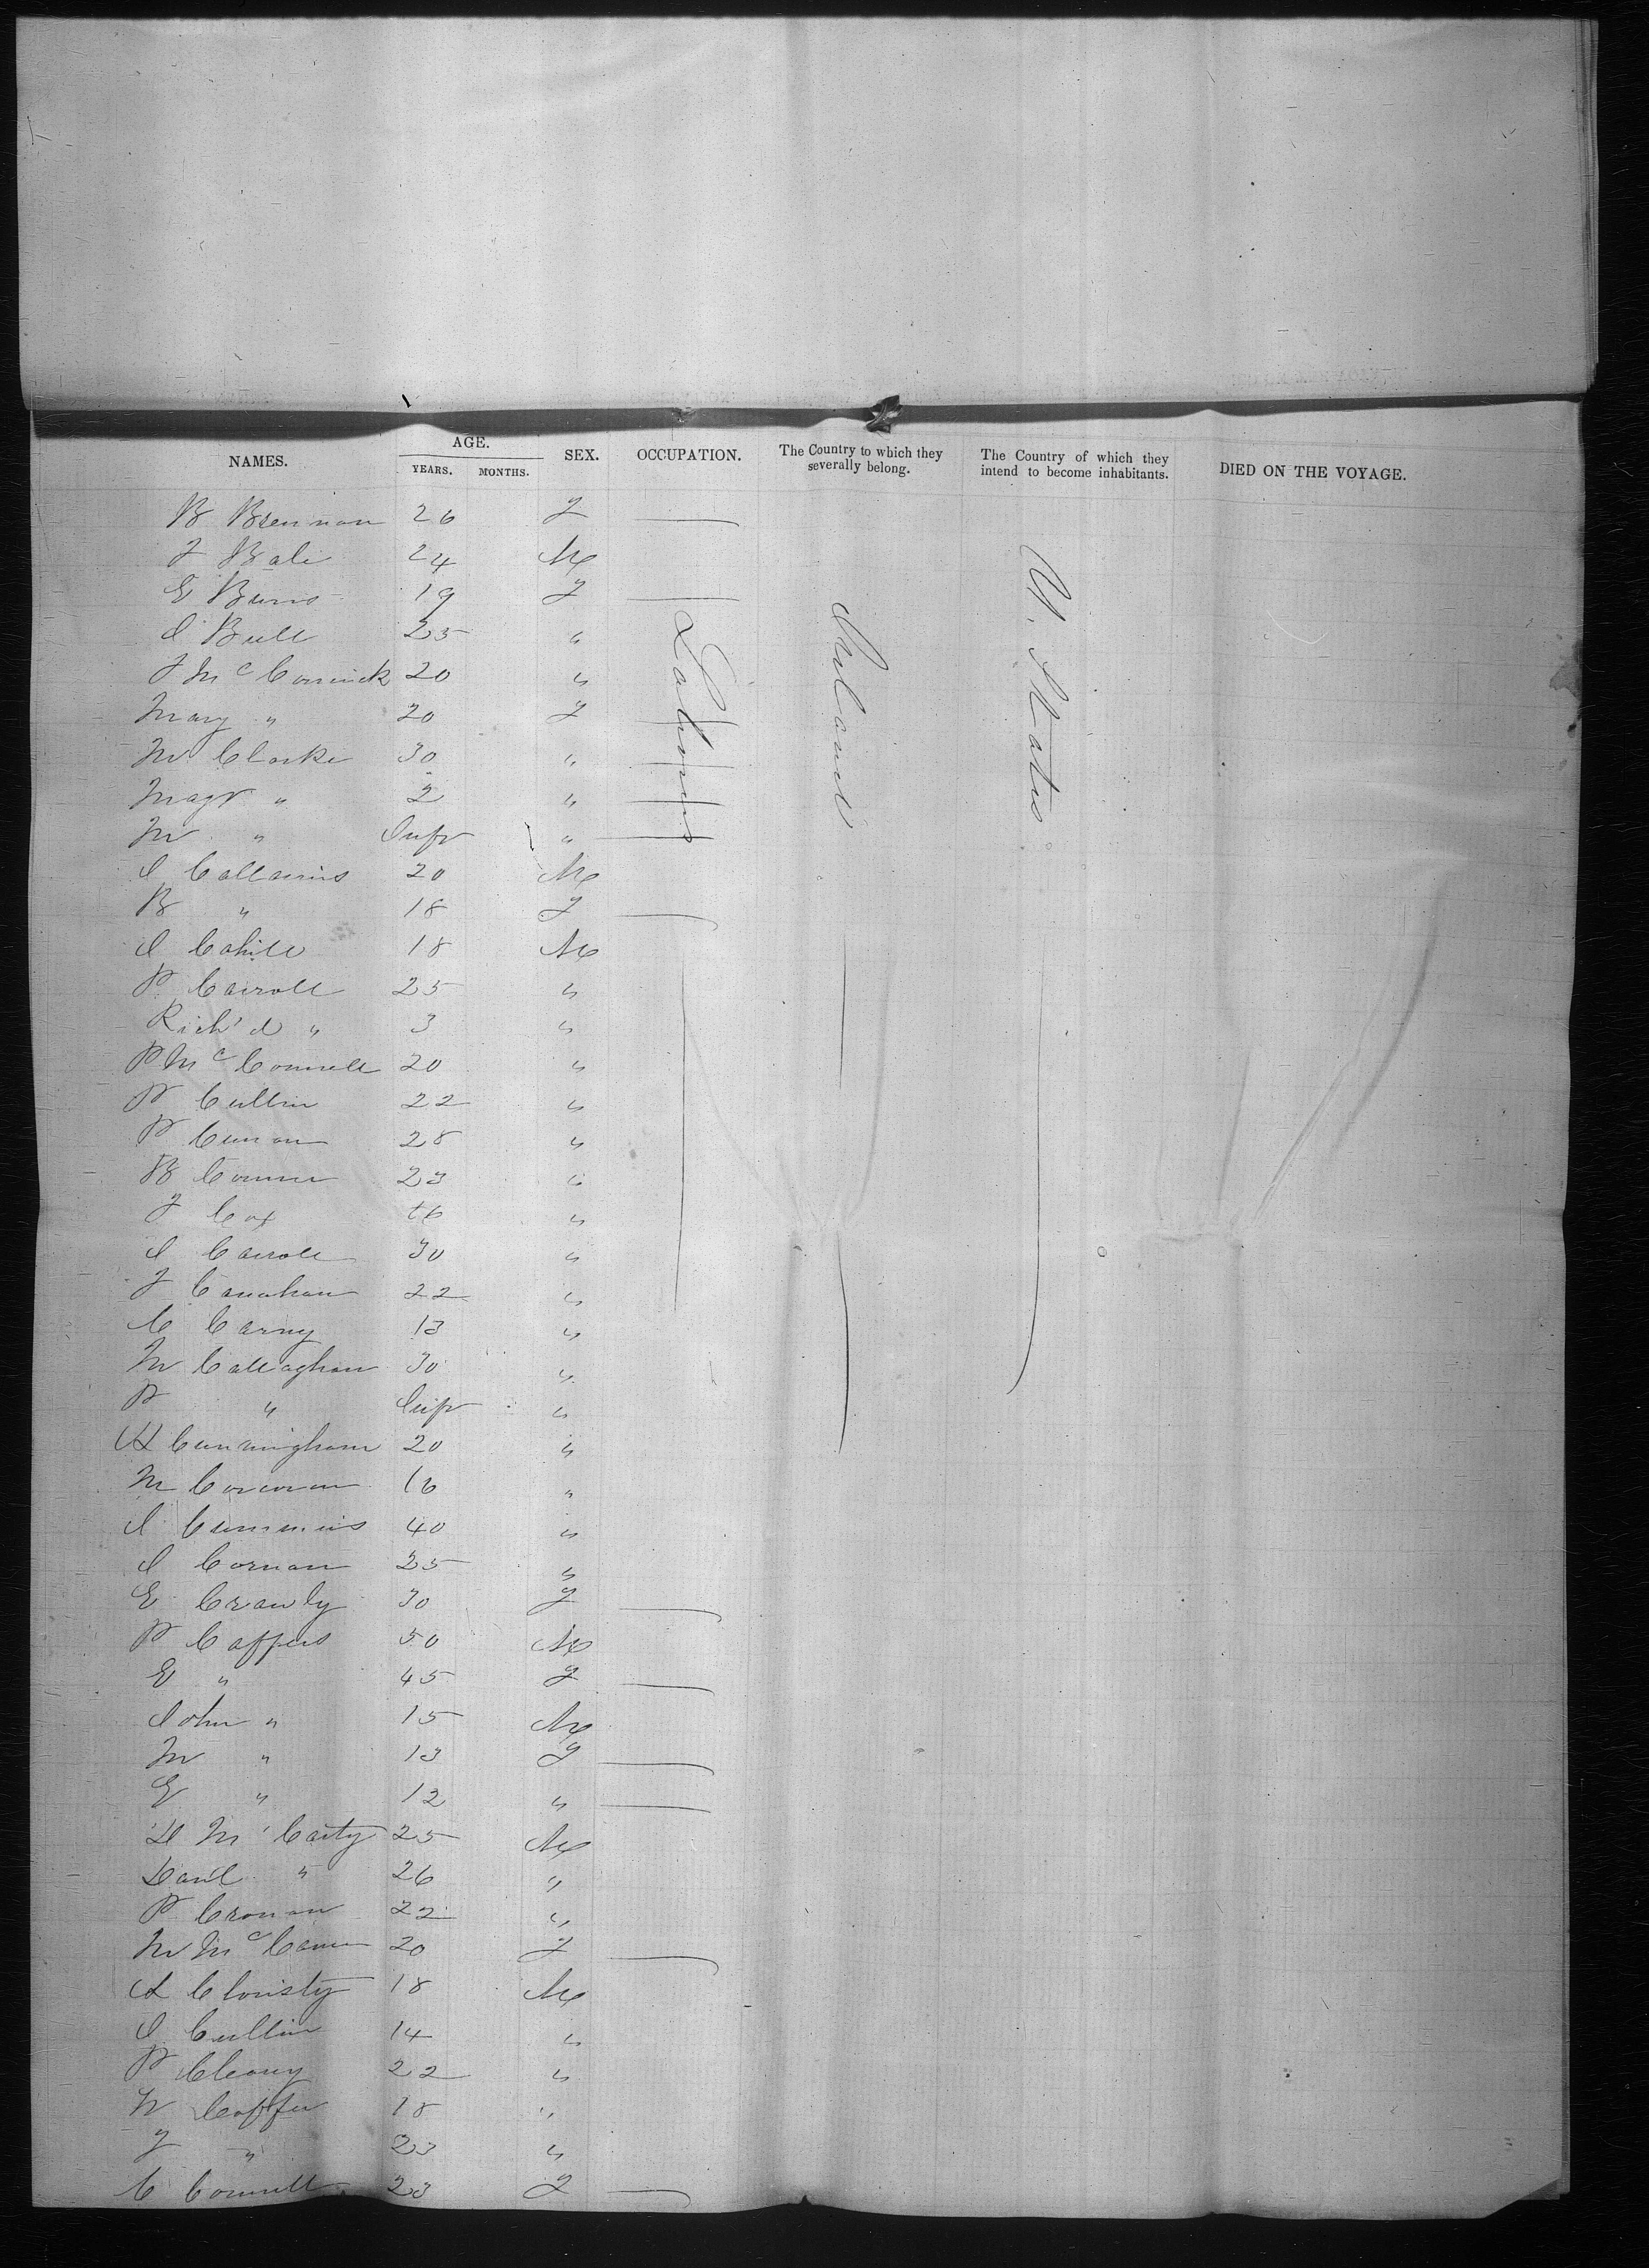 NAMES. AGE. YEARS. MONTHS. SEX. OCCUPATION. The Country to which they severally belong. The Country of which they intend to become inhabitants. DIED ON THE VOYAGE.
Labourers
Ireland
U. States
B Brennan 26 F
J Bale 24 M
E Burns 19 F
J Bull 25 "
J McCormick 20 "
Mary " 20 F
M Clarke 30 "
Magt " 2 "
M " Inft "
J 20 M
B " 18 F
J Cahill 18 M
P Carroll 25 "
Rich'd " 3 "
P McConnell 20 "
P Cullin 22 "
P 28 "
B 23 "
J Cox "
J Carroll 30 "
J Canahan 22 "
C Carny 13 "
M Callaghan 30 "
P " Inft "
H Cunningham 20 "
M Corcoran 16 "
J Cummins 40 "
J Cornan 25 "
E Crawly 30 F
P Coffers 50 M
E " 45 F
John " 15 M
M " 13 F
E " 12 "
D McCarty 25 M
Danl " 26 "
P Cronan 22 "
M McCann 20 F
A Christy 18 M
J Cullin 14 "
P Cleary 22 "
18 "
J " 23 "
C Connell 23 F